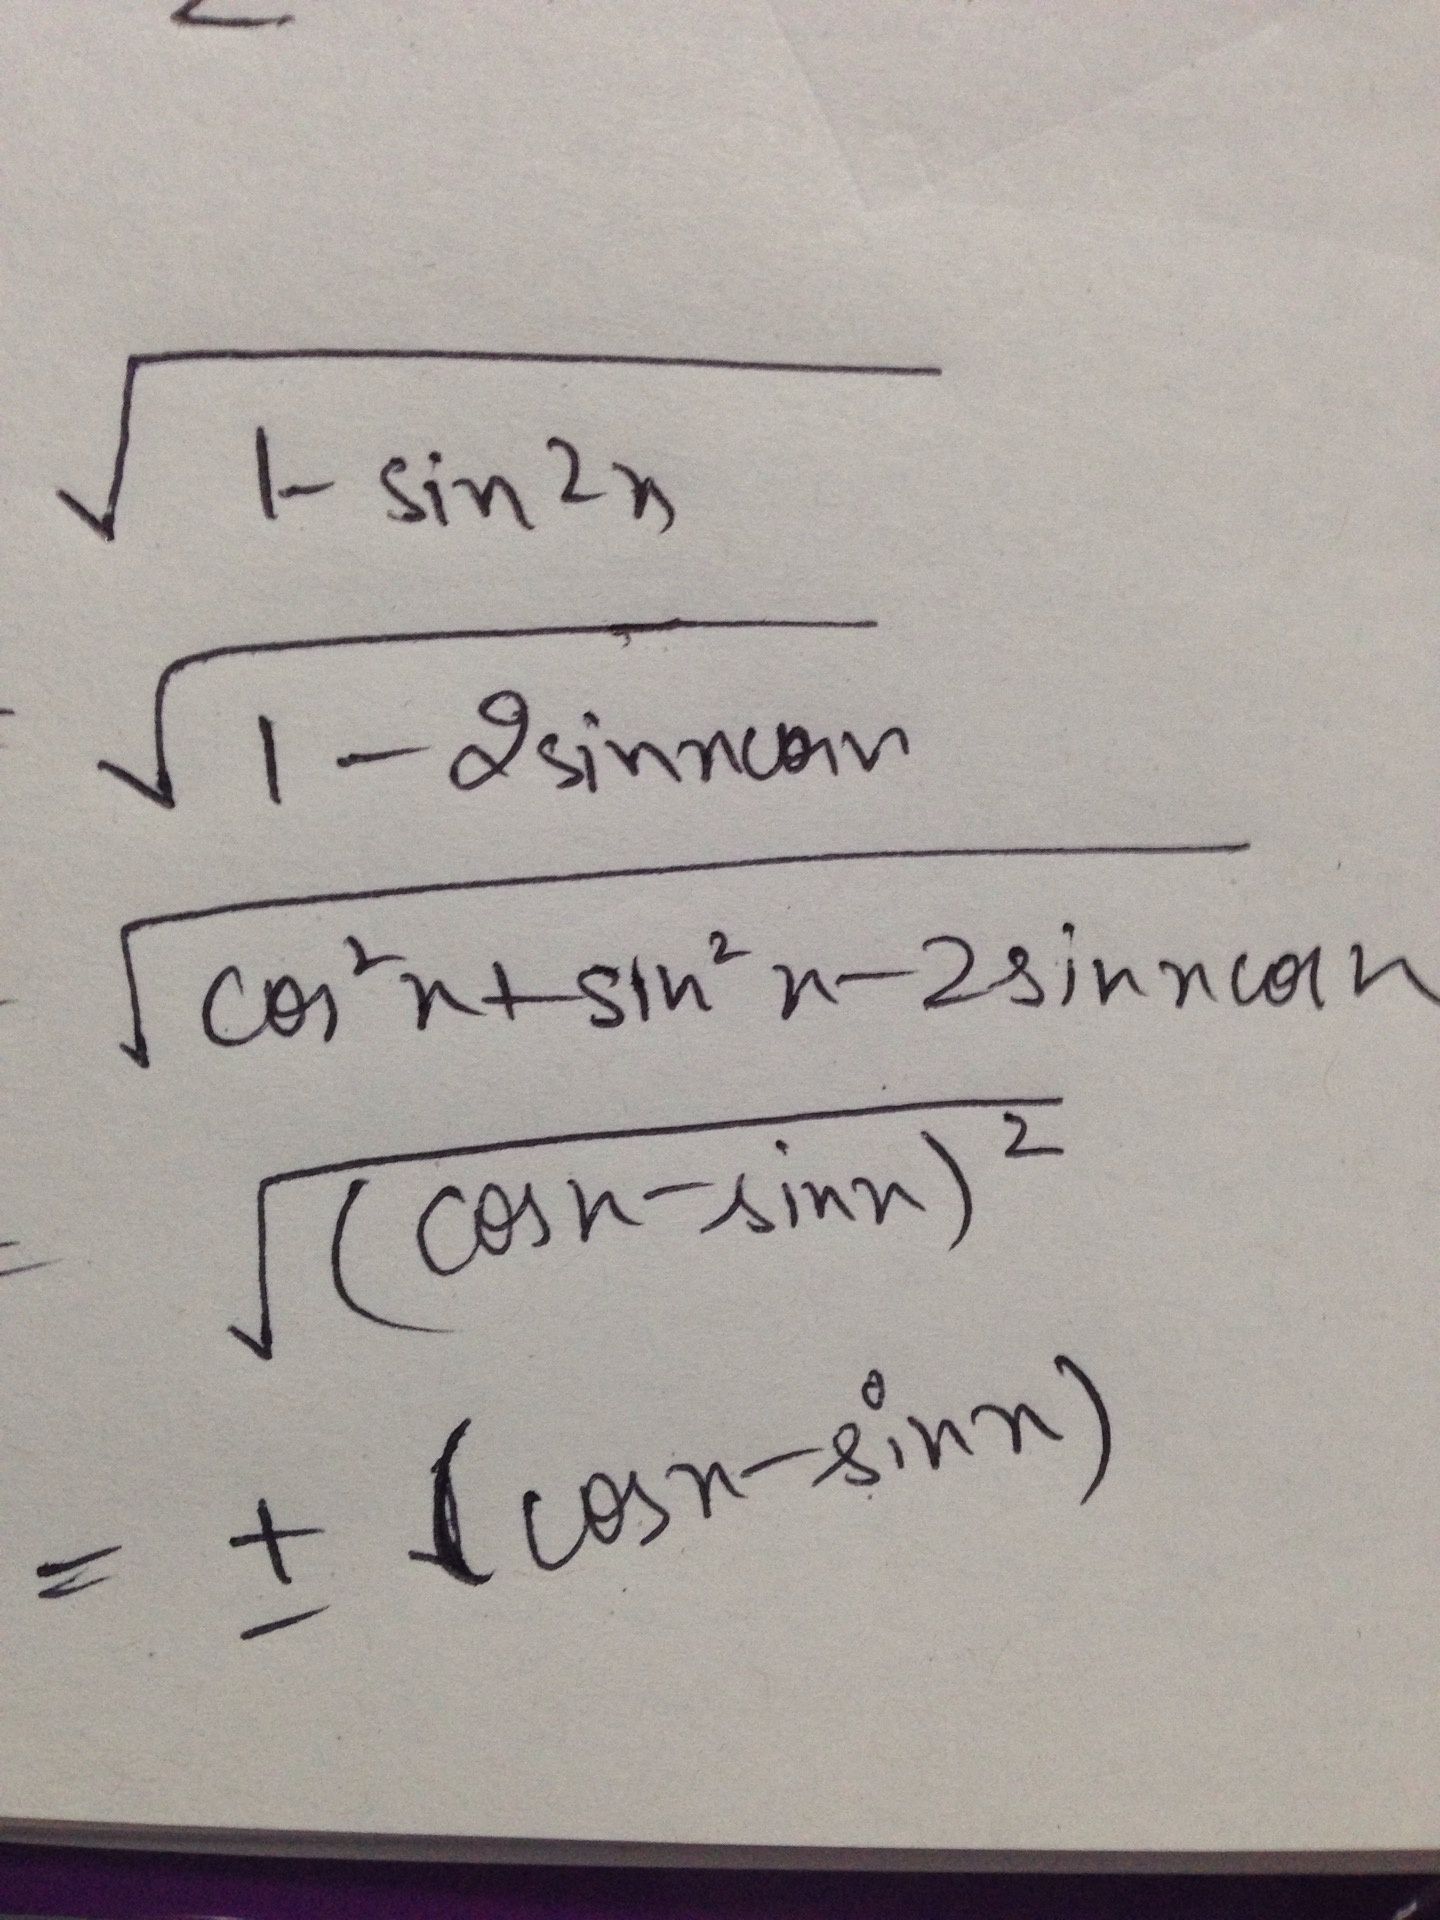 √(1-sin2x)
= √(1-2sinxcosx)
= √(cos²x+sin²x-2sinxcosx)
= √((cosx-sinx)²)
= ± (cosx-sinx)